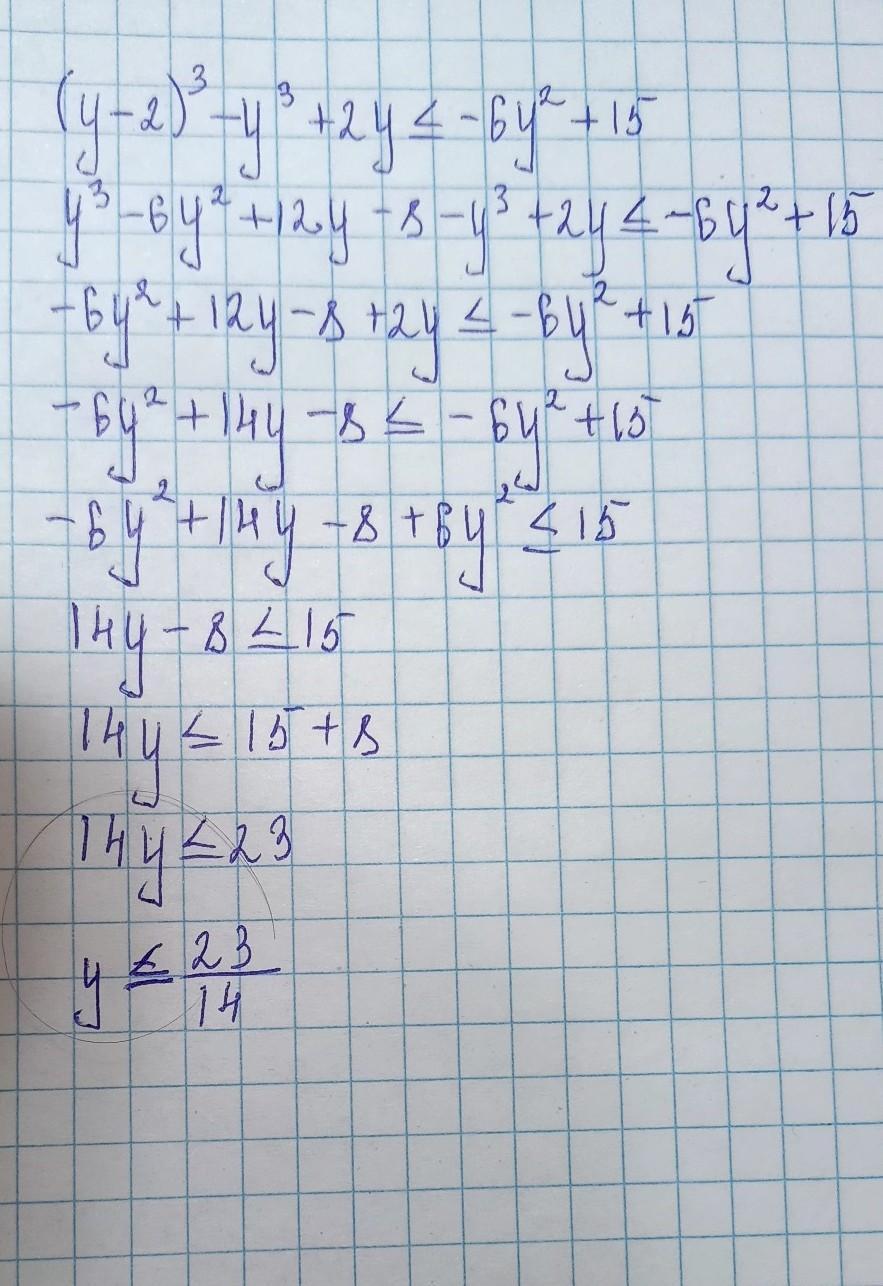 (y-2)³-y³+2y≤-6y²+15
y³-6y²+12y-8-y³+2y≤-6y²+15
-6y²+12y-8+2y≤-6y²+15
-6y²+14y-8≤-6y²+15
-6y²+14y-8+6y²≤15
14y-8≤15
14y≤15+8
14y≤23
y≤23/14